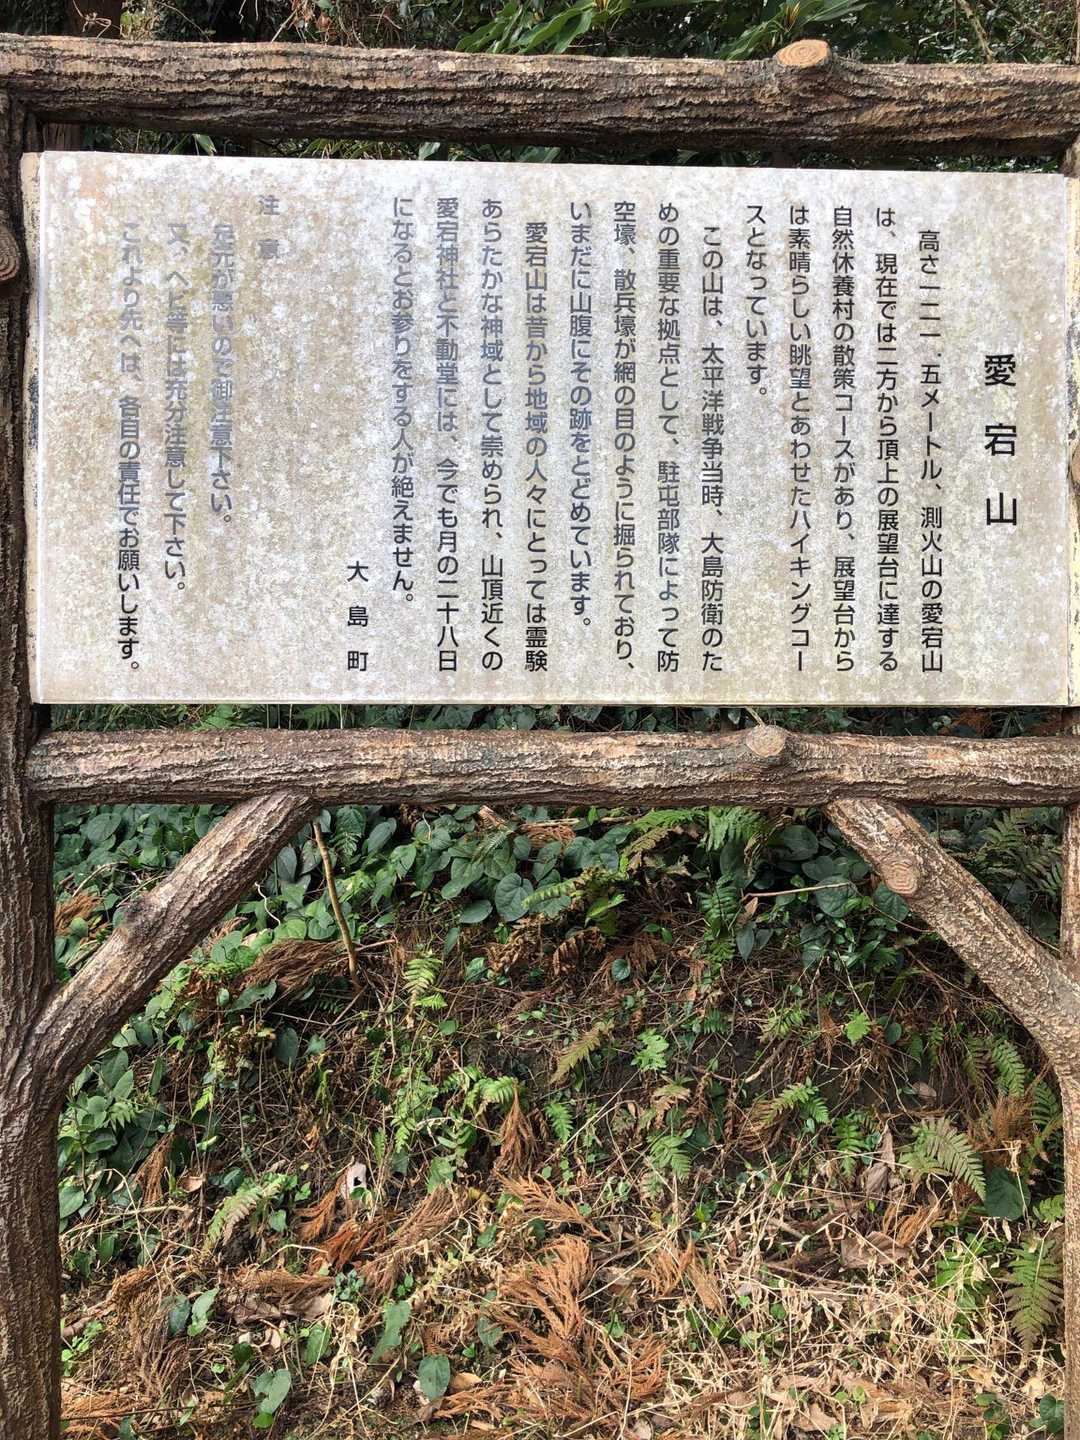 愛宕山
高さ一二一.五メートル、測火山の愛宕山
は、現在では二方から頂上の展望台に達する
自然休養村の散策コースがあり、展望台から
は素晴らしい眺望とあわせたハイキングコー
スとなっています。
この山は、太平洋戦争当時、大島防衛のた
めの重要な拠点として、駐屯部隊によって防
空壕、散兵壕が網の目のように掘られており、
いまだに山腹にその跡をとどめています。
愛宕山は昔から地域の人々にとっては霊験
あらたかな神域として崇められ、山頂近くの
愛宕神社と不動堂には、今でも月の二十八日
になるとお参りをする人が絶えません。
大島町
注意
足元が悪いので御注意下さい。
又、ヘビ等には充分注意して下さい。
これより先へは、各自の責任でお願いします。